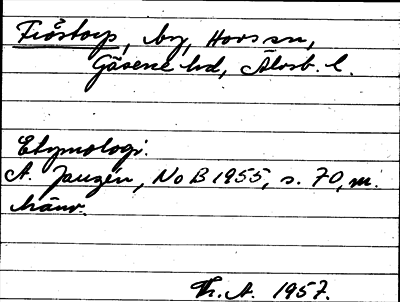 Fröstorp, by, Hovs sn,
Gäsene hd, Älvsb. l.
Etymologi.
A. Janzén, NoB 1955, s. 70, m.
hänv.
Th. A. 1957.